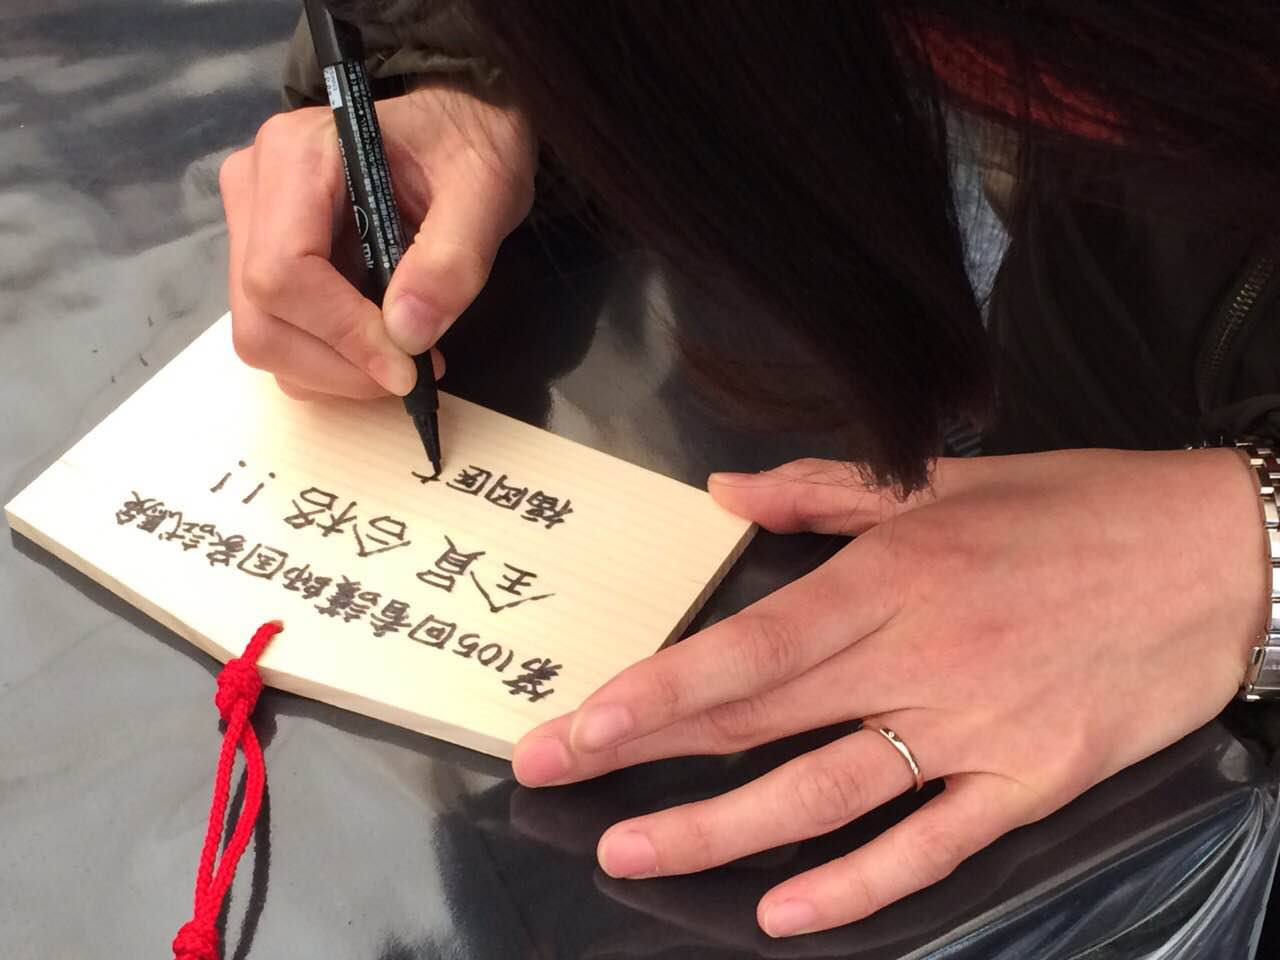 第105回看護師国家試験
全員合格!!
福岡医